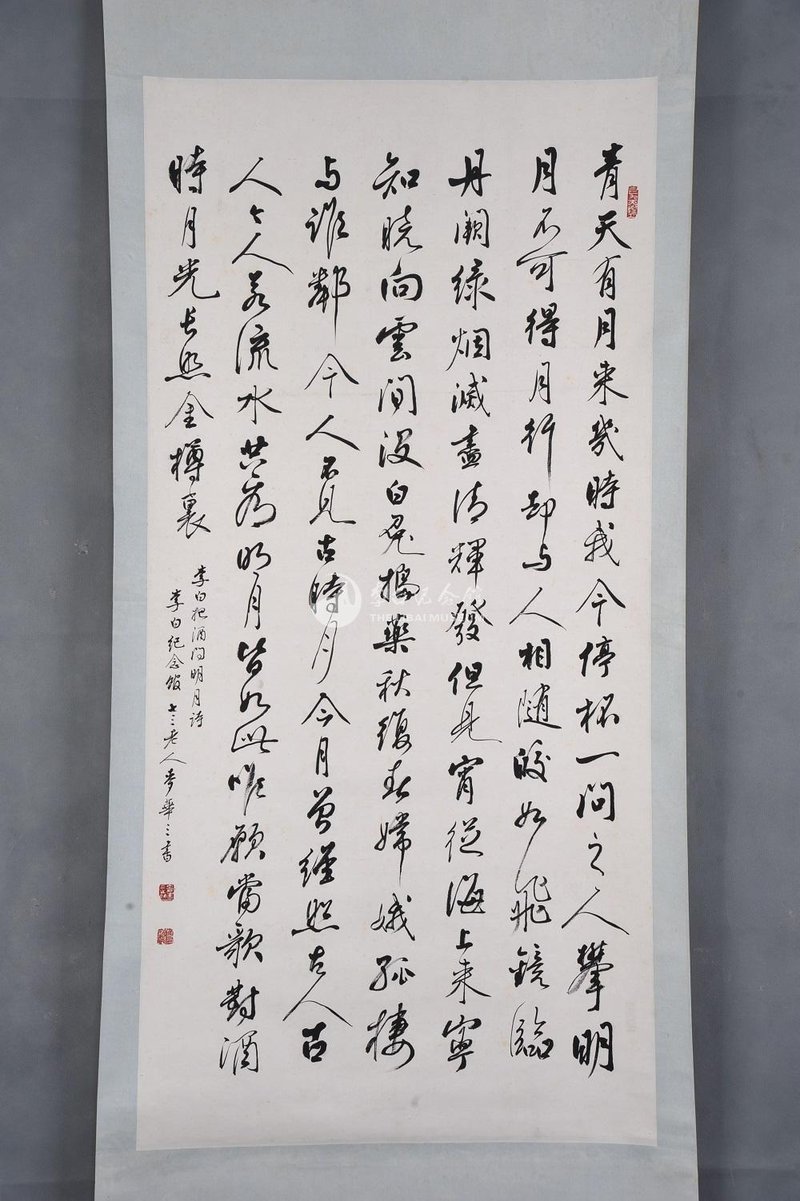 青天有月来幾時我今停杯一问之人攀明
月不可得月行却与人相随皎如飛鏡臨
丹阙绿烟滅盡清輝發但見宵從海上来寧
知晓向雲间没白兔搗藥秋復春嫦娥孤棲
与誰鄰今人不見古時月今月曾經照古人古
人今人若流水共看明月皆如此唯願當歌對酒
時月光长照金樽裏
李白把酒问明月詩
李白纪念馆 七三老人麥華三書
李白纪念馆
THE LIBAI MUSEUM